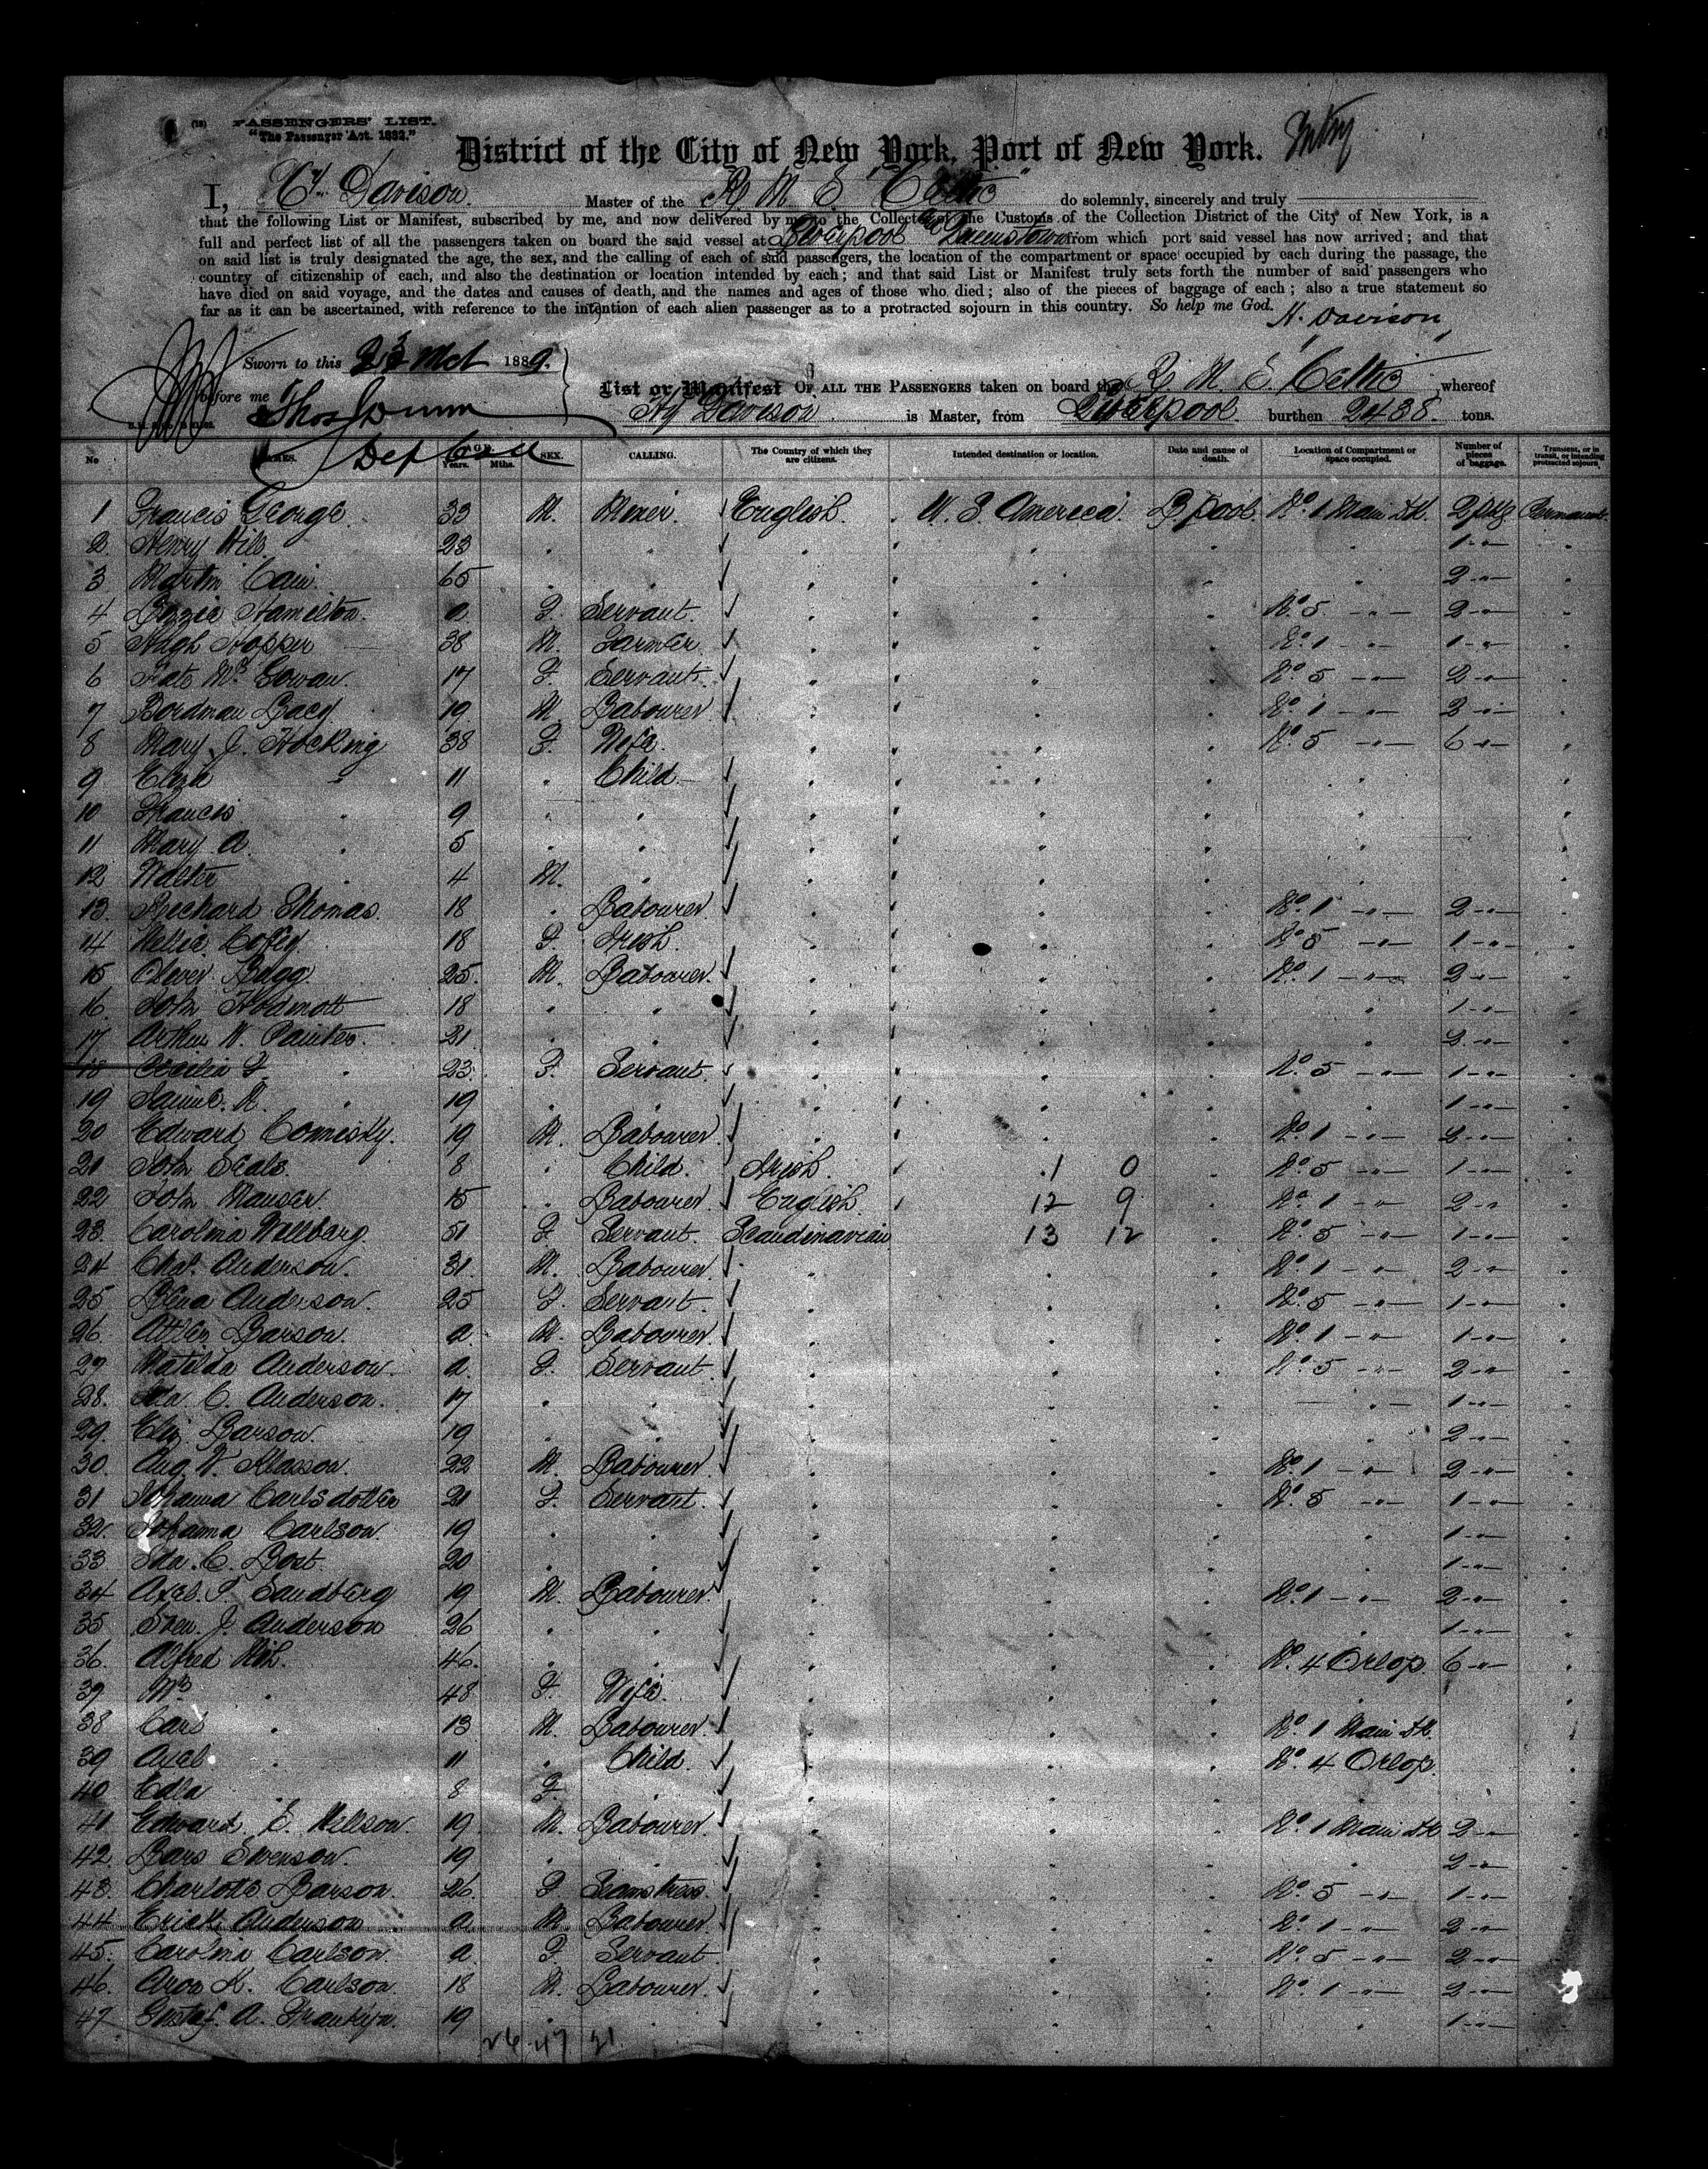 (18) PASSENGERS' LIST.
"The Passenger Act, 1882."
District of the City of New York, Port of New York.
I, Hy. Davison. Master of the R. M. S. "Celtic" do solemnly, sincerely and truly
that the following List or Manifest, subscribed by me, and now delivered by me to the Collector of the Customs of the Collection District of the City of New York, is a
full and perfect list of all the passengers taken on board the said vessel at Liverpool & Queenstown from which port said vessel has now arrived; and that
on said list is truly designated the age, the sex, and the calling of each of said passengers, the location of the compartment or space occupied by each during the passage, the
country of citizenship of each, and also the destination or location intended by each; and that said List or Manifest truly sets forth the number of said passengers who
have died on said voyage, and the dates and causes of death, and the names and ages of those who died; also of the pieces of baggage of each; also a true statement so
far as it can be ascertained, with reference to the intention of each alien passenger as to a protracted sojourn in this country. So help me God.
H. Davison
Sworn to this 23 Oct 1889.
before me Thos Dunn
Dep Coll
List or Manifest OF ALL THE PASSENGERS taken on board the R. M. S. Celtic whereof
Hy Davison is Master, from Liverpool burthen 2438. tons.
No NAMES. AGE. Years. Mths. SEX. CALLING. The Country of which they are citizens. Intended destination or location. Date and cause of death. Location of Compartment or space occupied. Number of pieces of baggage. Transient, or in transit, or intending protracted sojourn.
1 Francis George. 33 M. Miner. English. U. S. America. L.pool. No. 1 Main Dk. 2 pkg Permanent.
2 Henry 23 " " 1 "
3 Martin Cain. 65 " " 2 "
4 Lizzie Hamilton. a F. Servant. No. 5 " 2 "
5 Hugh Hopper 38 M. Farmer. No. 1 " 1 "
6 Kate McGowan. 17 F. Servant. No. 5 " 2 "
7 Bordman Lacy. 19 M. Labourer. No. 1 "
8 Mary J. Hocking 38 F. Wife. No. 5 " 6 "
9 Eliza " 11 " Child.
10 Francis " 9 " "
11 Mary A. " 5 " "
12 Walter " 4 M. "
13 Richard Thomas. 18 " Labourer. No. 1 " 2 "
14 Nellie 18 F. Irish. No. 5 " 1 "
15 Oliver 25. M. Labourer. No. 1 " 2 "
16 John Hodmott 18 " " 1 "
17 Arthur W. Painter. 21. " "
18 Cecilia F. " 23. F. Servant. No. 5 " 1 "
19 " 19 " " 1 "
20 Edward Comisky. 19 M. Labourer. No. 1 "
21 John 8 " Child. Irish. 1 0 No. 5 " 1 "
22 John Mauser. 15 " Labourer. English. 12 9 No. 1 " 2 "
23. Carolina Wellberg. 51 F Servant. Scandinavian. 13 12 No. 5 " 1 "
24 Chas. Anderson. 31. M. Labourer. No. 1 " 2 "
25 Lena Anderson. 25 F. Servant. No. 5 " 1 "
26. Larson. a. M. Labourer. No. 1 " 1 "
27 Matilda Anderson. a. F. Servant. No. 5 " 2 "
28. C. Anderson. 17 " " 1 "
29. Eliz. Larson. 19 " " 2 "
30. Aug. W. Klasson. 22 M. Labourer. No. 1 " 2 "
31 Johanna Carlsdotter 21 F. Servant. No. 5 " 1 "
32. Johanna Carlson. 19 " " 1 "
33 Ida. C. Lost. 20 " " 1 "
34 Axel. P. Sandberg 19 M. Labourer. No. 1 " 2 "
35 Sven. J. Anderson 26 " " 1 "
36. Alfred 46. " " No. 4 Orlop 6 "
37 Mrs " 48 F. Wife.
38 Carl " 13 M. Labourer. No. 1 Main Dk.
39 Axel " 11 " Child. No. 4 Orlop.
40 Edla " 8 F.
41 Edward. E. Nillson. 19 M. Labourer. No. 1 Main Dk 2 "
42. Lars Swenson. 19 " "
43. Charlotte Larson. 26. F Seamstress. No. 5 " 1 "
44 Erick Anderson a. M Labourer. No. 1 " 2 "
45. Carolina Carlson. a F. Servant No. 5 " 2 "
46. Aron K. Carlson. 18 M. Labourer. No. 1 "
47. Gustaf. A. 19 " " 1 "
26 47 21.